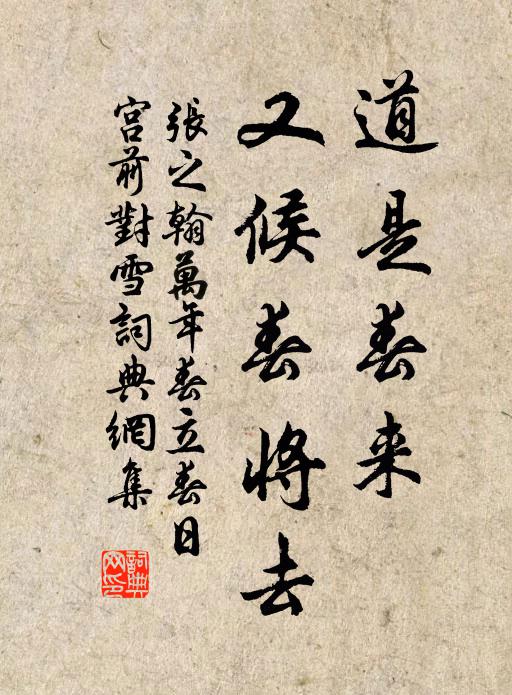 道是春来
又候春將去
張之翰萬年春立春日
宮前對雪詞典網集
詞典網印